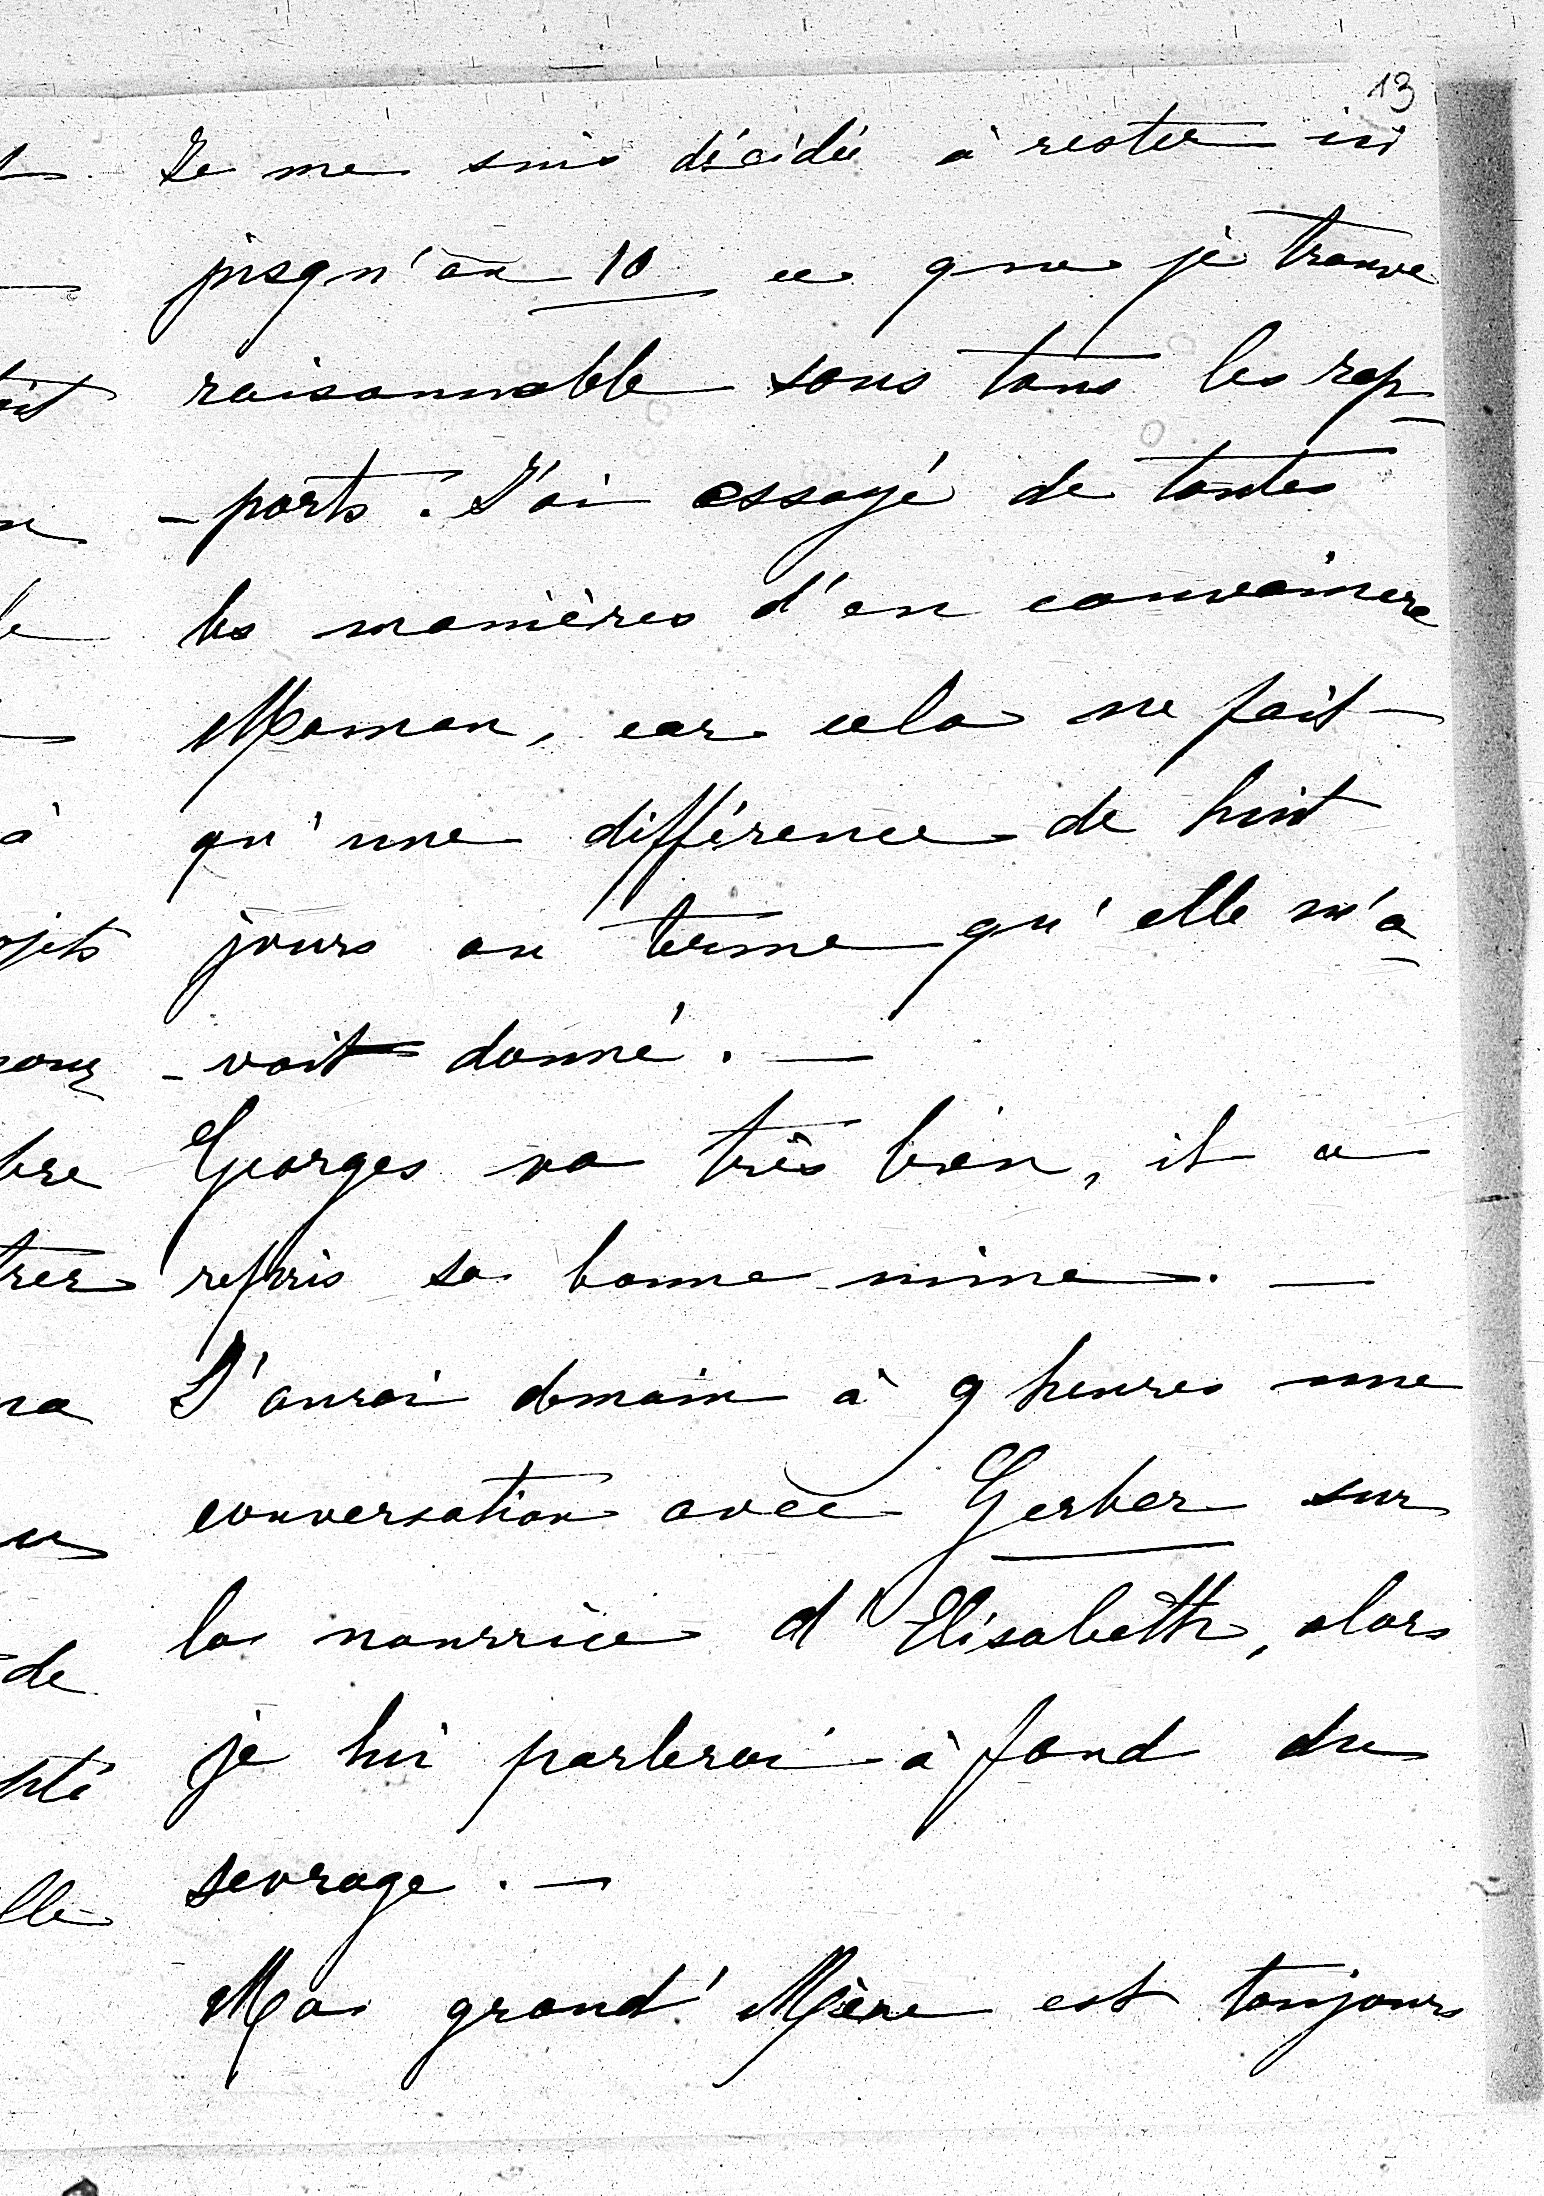 13
Je me suis décidée à rester ici
jusqu'au 10 ce que je trouve
raisonnable sous tous les rap
-ports. J'ai essayé de toutes
les manières d'en convaincre
Maman, car cela ne fait
qu'une différence de huit
jours au terme qu'elle m'a
-vait donné. —
Georges va très bien, il a
repris sa bonne mine. —
J'aurai demain à 9 heures une
conversation avec Gerber sur
la nourrice d'Elisabeth, alors
je lui parlerai à fond du
sevrage. —
Ma grand'Mère est toujours